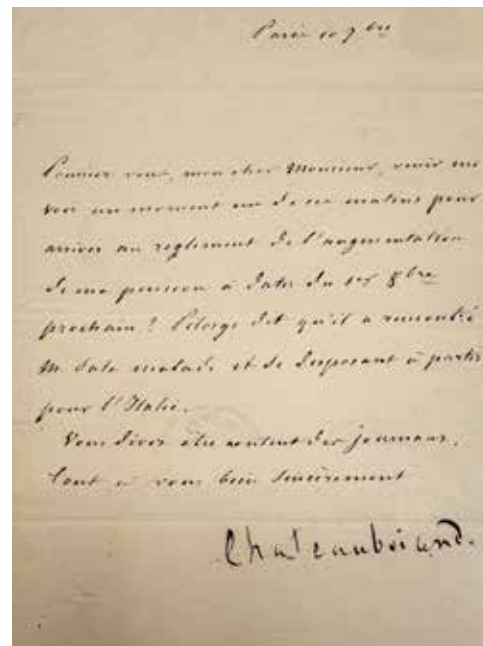 Paris 10 7bre
Pourriez vous, mon cher Monsieur, venir me
voir un moment un de ces matins pour
arriver au reglement de l'augmentation
de ma pension à dater du 1er 8bre
prochain ? Pilorge dit qu'il a rencontré
M. Sala malade et se disposant à partir
pour l'Italie.
Vous devez etre content des journaux.
Tout à vous bien sincèrement
Chateaubriand.